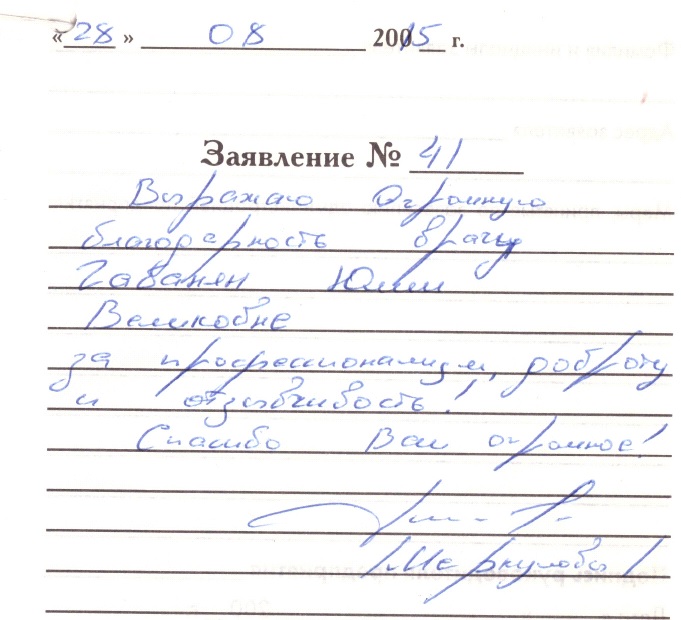 «28» 08 20015 г.
Заявление № 41
Выражаю Огромную
благодарность врачу
Гаванян Юлии
Великовне
за профессионализм, доброту
и отзывчивость!
Спасибо Вам огромное!
/Меркулова/